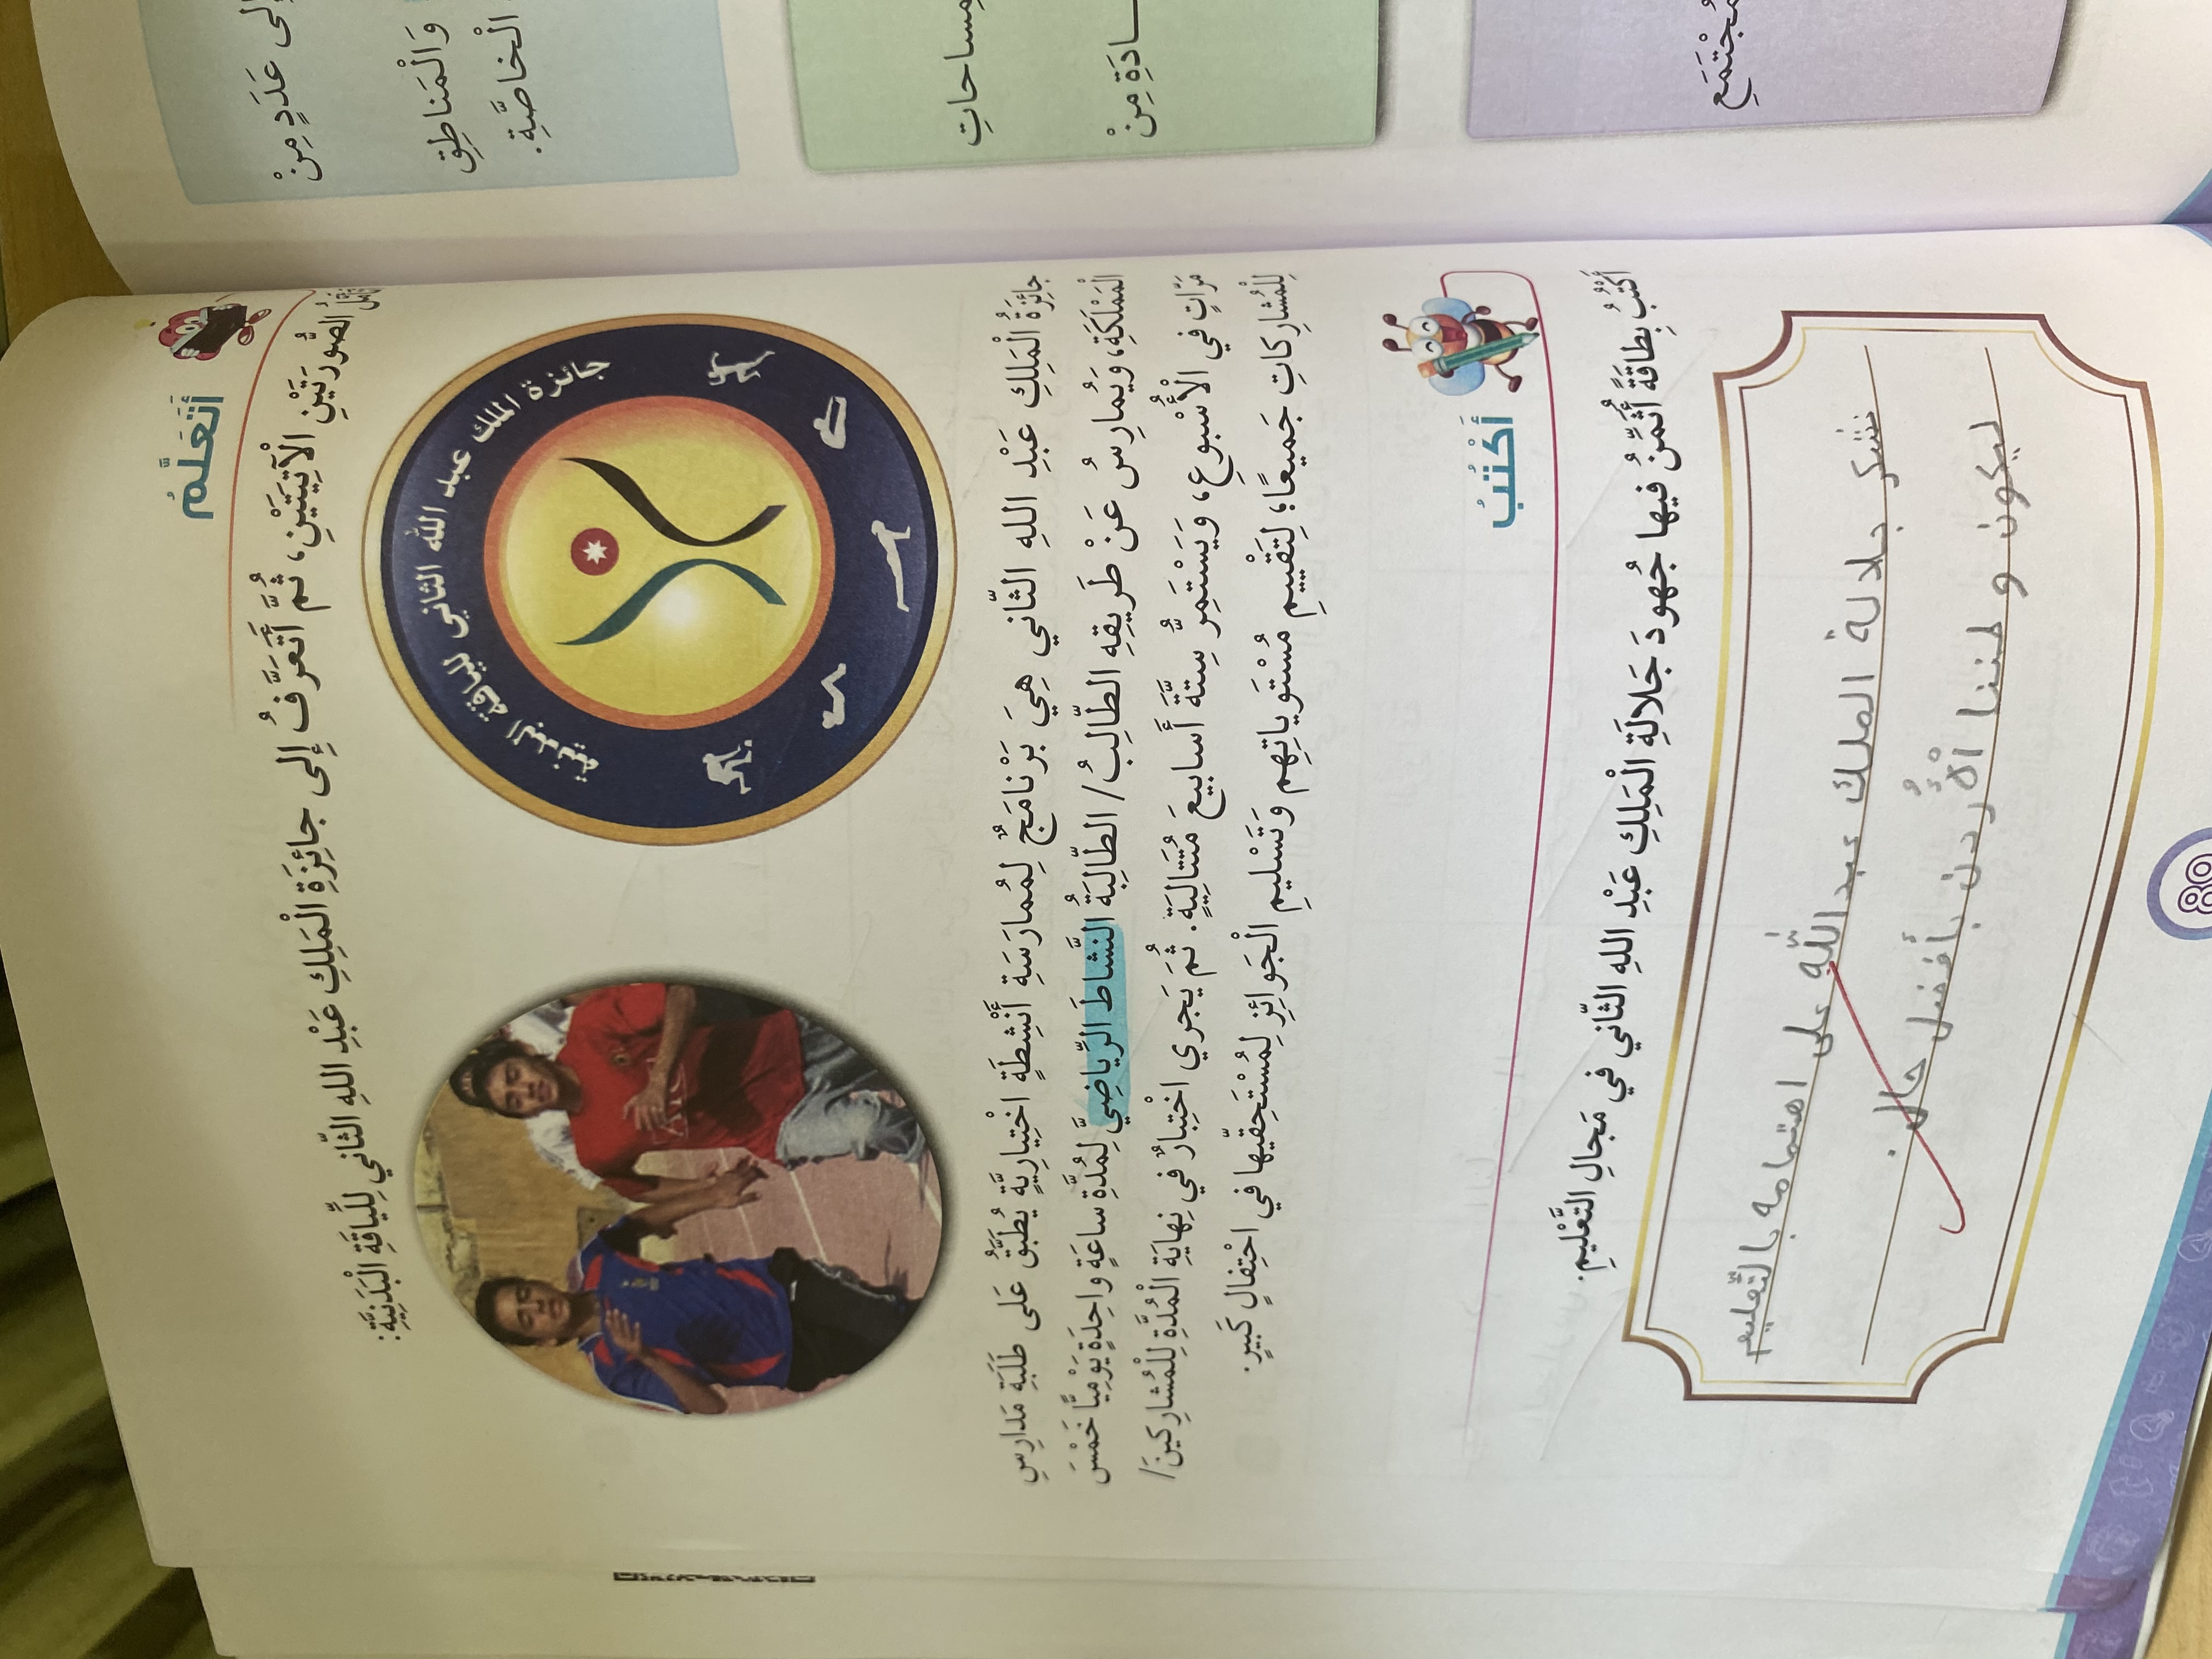 أَتَعَلَّمُ
الصُّورَتَيْنِ الْآتِيَتَيْنِ، ثُمَّ أَتَعَرَّفُ إِلى جائِزَةِ الْمَلِكِ عَبْدِ اللهِ الثّاني لِلِّياقَةِ الْبَدَنِيَّةِ:
جائزة الملك عبد الله الثاني للياقة البدنية
جائِزَةُ الْمَلِكِ عَبْدِ اللهِ الثّاني هِيَ بَرْنامَجٌ لِمُمارَسَةِ أَنْشِطَةٍ اخْتِيارِيَّةٍ يُطَبَّقُ عَلى طَلَبَةِ مَدارِسِ
الْمَمْلَكَةِ، وَيُمارِسُ عَنْ طَريقِهِ الطّالِبُ/ الطّالِبَةُ النَّشاطَ الرِّياضِيَّ لِمُدَّةِ ساعَةٍ واحِدَةٍ يَوْمِيًّا خَمْسَ
مَرّاتٍ في الْأُسْبوعِ، وَيَسْتَمِرُّ سِتَّةَ أَسابيعَ مُتَتالِيَةٍ. ثُمَّ يَجْري اخْتِبارٌ في نِهايَةِ الْمُدَّةِ لِلْمُشارِكينَ/
لِلْمُشارِكاتِ جَميعًا؛ لِتَقْييمِ مُسْتَوَياتِهِم وَتَسْليمِ الْجَوائِزِ لِمُسْتَحِقّيها في احْتِفالٍ كَبيرٍ.
أَكْتُبُ
أَكْتُبُ بِطاقَةً أُثَمِّنُ فيها جُهودَ جَلالَةِ الْمَلِكِ عَبْدِ اللهِ الثّاني في مَجالِ التَّعْليمِ.
نشكر جلالة الملك عبد اللّه على اهتمامه بالتّعليم
ليكون وطننا الْأُردن بأفضل حال.
80
إِلى عَدَدٍ مِنْ
وَالْمَناطِقِ
الْخاصَّةِ.
مِساحاتِ
ـادَةِ مِنْ
مُجْتَمَعِ